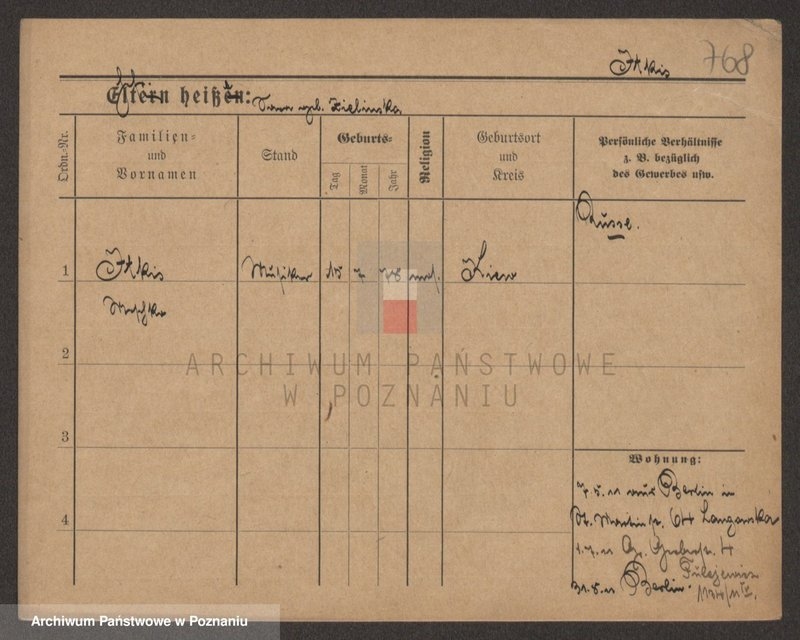 Itkis 768
Eltern heißen: Frau geb. Zielinska
Ordn.-Nr.
Familien-
und
Vornamen
Stand
Geburts-
Tag
Monat
Jahr
Religion
Geburtsort
und
Kreis
Persönliche Verhältnisse
z. B. bezüglich
des Gewerbes usw.
Russe.
1 Itkis Musiker 15 7 78 mos. Kiew
Moschka
ARCHIWUM PAŃSTWOWE
W POZNANIU
2
3
4
Wohnung:
7.5.11 aus Berlin in
St. Martinstr. 64
Gr. Gerberstr. 4
31.8.11 Berlin.
Archiwum Państwowe w Poznaniu